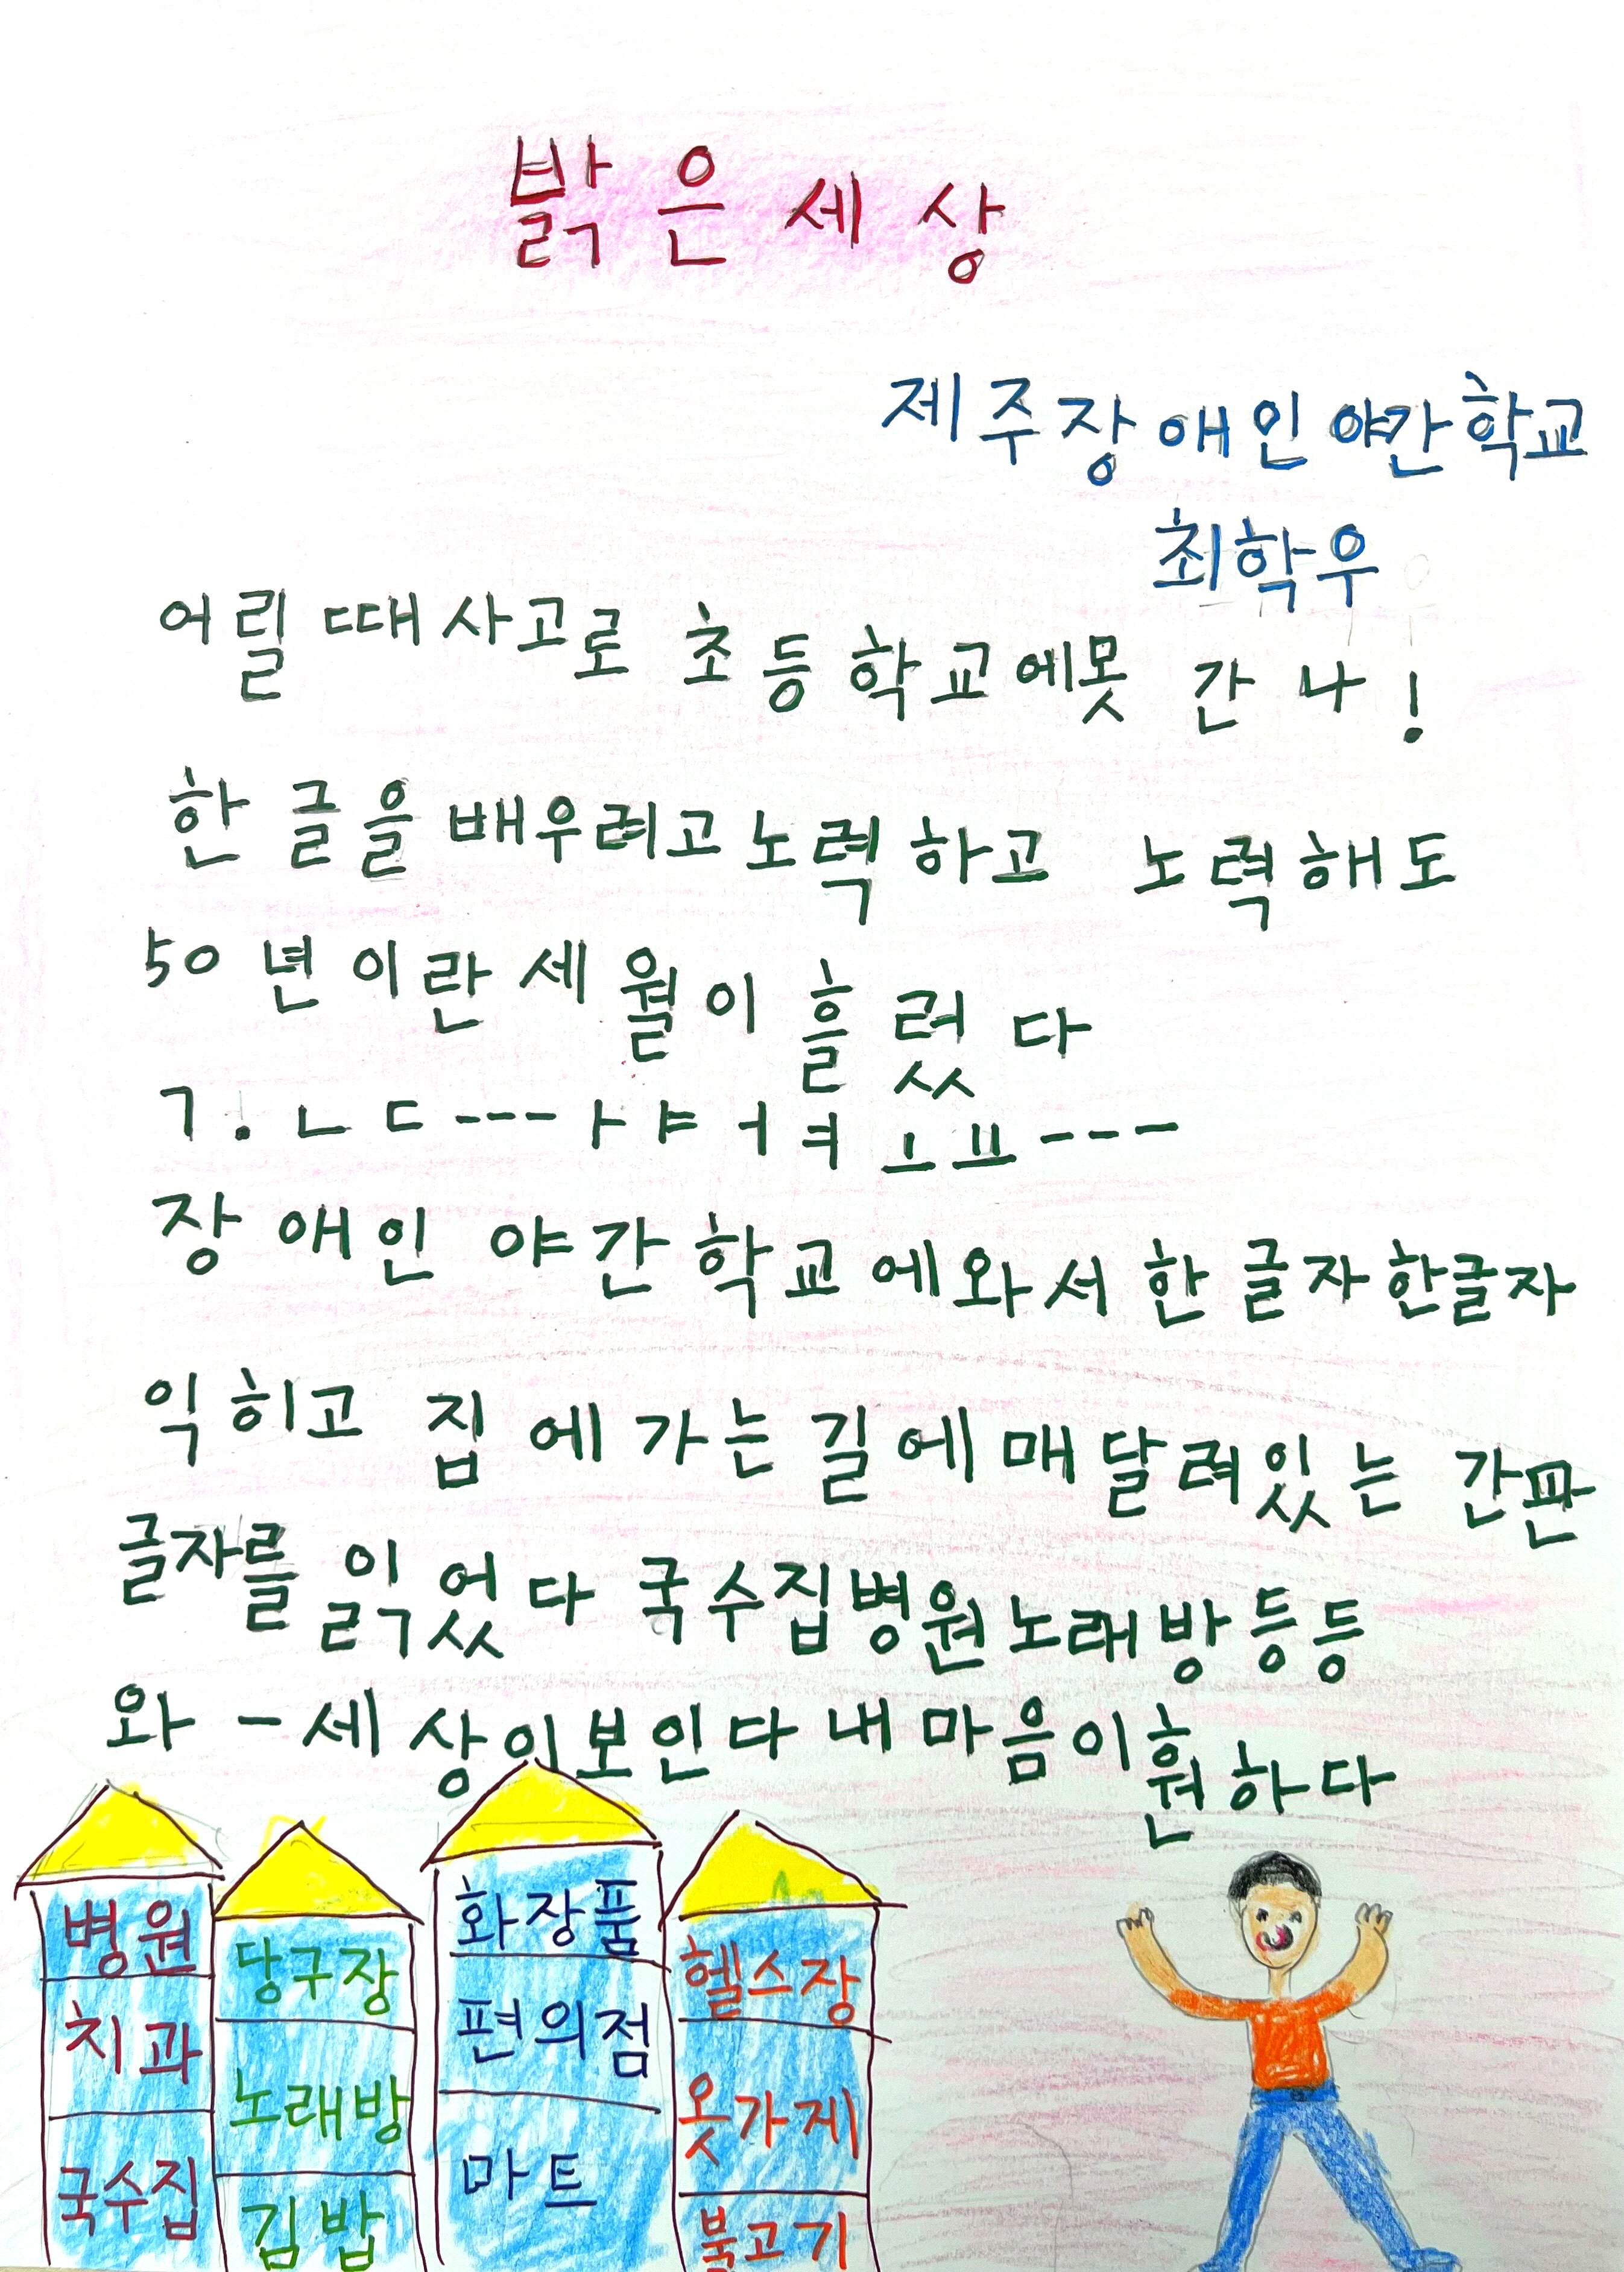 밝은 세상
제주장애인야간학교
최학우
어릴 때 사고로 초등학교에 못 간 나!
한글을 배우려고 노력하고 노력해도
50년이란 세월이 흘렀다
ㄱ. ㄴ ㄷ --- ㅏ ㅑ ㅓ ㅕ ㅗ ㅛ ---
장애인 야간학교에 와서 한글자 한글자
익히고 집에 가는 길에 매달려있는 간판
글자를 읽었다 국수집 병원 노래방 등등
와 - 세상이 보인다 내 마음이 훤하다
병원
치과
국수집
당구장
노래방
김밥
화장품
편의점
마트
헬스장
옷가게
불고기